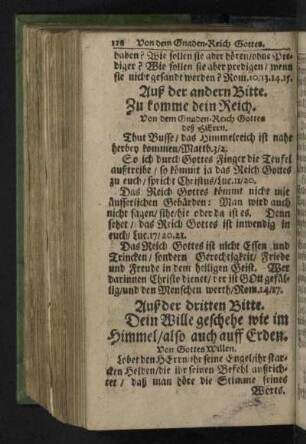 128 Von dem Gnaden-Reich Gottes.
haben? Wie sollen sie aber hören/ohne Pre-
diger? Wie sollen sie aber predigen/ wenn
sie nicht gesandt werden? Rom.10.13.14.15.
Auß der andern Bitte.
Zu komme dein Reich.
Von dem Gnaden-Reich Gottes
deß HErrn.
Thut Busse/ das Himmelreich ist nahe
herbey kommen/Matth.3/2.
So ich durch Gottes Finger die Teufel
außtreibe/ so kömmt ja das Reich Gottes
zu euch/ spricht Christus/Luc.11/20.
Das Reich Gottes kömmt nicht mit
äusserlichen Gebärden: Man wird auch
nicht sagen/ sihe/ hie oder da ist es. Denn
sehet/ das Reich Gottes ist inwendig in
euch/Luc.17/20.21.
Das Reich Gottes ist nicht Essen und
Trincken/ sondern Gerechtigkeit/ Friede
und Freude in dem heiligen Geist. Wer
darinnen Christo dienet/ der ist GOtt gefäl-
lig/und den Menschen werth/Rom.14/17.
Auß der dritten Bitte.
Dein Wille geschehe wie im
Himmel/also auch auff Erden.
Von Gottes Willen.
Lobet den HErrn/ihr seine Engel/ihr star-
cken Helden/die ihr seinen Befehl außrich-
tet/ daß man höre die Stimme seines
Worts.